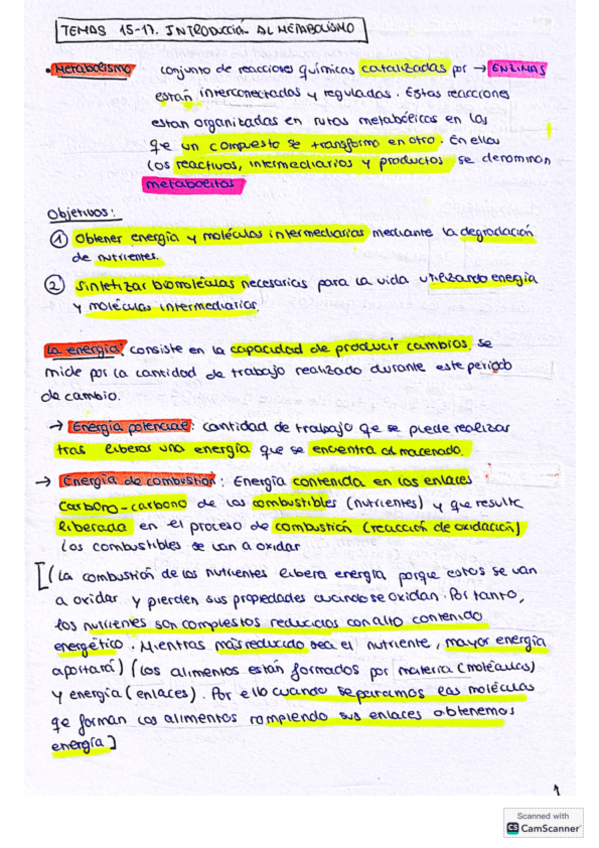 TEMAS 15-17. INTRODUCCIÓN AL METABOLISMO
• Metabolismo conjunto de reacciones químicas catalizadas por → ENZIMAS
están interconectadas y reguladas. Estas reacciones
estan organizadas en rutas metabólicas en las
que un compuesto se transforma en otro. En ellas
los reactivos, intermediarios y productos se denominan
metabolitos
Objetivos:
① Obtener energía y moléculas intermediarias mediante la degradación
de nutrientes.
② Sintetizar biomoléculas necesarias para la vida utilizando energía
y moléculas intermediarias.
La energía: consiste en la capacidad de producir cambios. se
mide por la cantidad de trabajo realizado durante este periodo
de cambio.
→ Energía potencial: cantidad de trabajo qe se puede realizar
tras liberar una energía que se encuentra almacenado.
→ Energía de combustión: Energía contenida en los enlaces
carbono-carbono de los combustibles (nutrientes) y que resulta
liberada en el proceso de combustión (reacción de oxidación)
Los combustibles se van a oxidar
[(La combustión de los nutrientes libera energía porque estos se van
a oxidar y pierden sus propiedades cuando se oxidan. Por tanto,
los nutrientes son compuestos reducidos con alto contenido
energético. Mientras más reducido sea el nutriente, mayor energía
aportará) (Los alimentos están formados por materia (moléculas)
y energía (enlaces). Por ello cuando separamos las moléculas
qe forman los alimentos rompiendo sus enlaces obtenemos
energía]
1
Scanned with
CS CamScanner